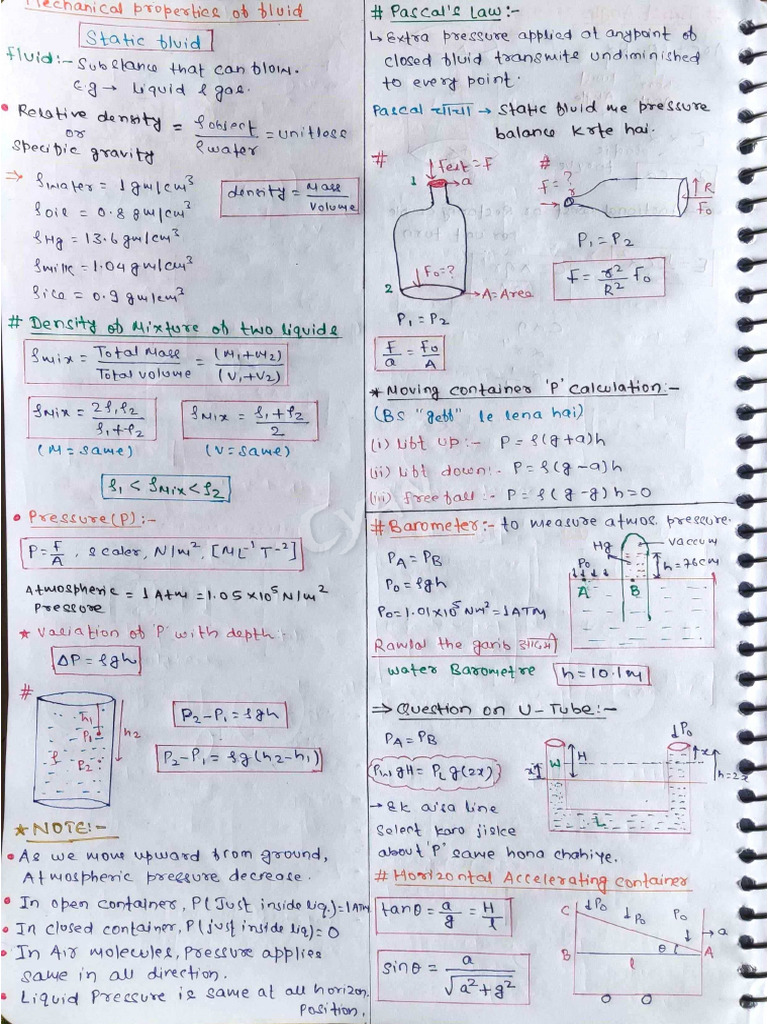 Mechanical properties of fluid
Static fluid
fluid:- Substance that can flow.
E.g → Liquid & gas.
• Relative density = ρobject / ρwater = unitless
or
Specific gravity
⇒ ρwater = 1 gm/cm³
ρoil = 0.8 gm/cm³
ρHg = 13.6 gm/cm³
ρmilk = 1.04 gm/cm³
ρice = 0.9 gm/cm³
density = Mass / Volume
# Density of Mixture of two liquids
ρmix = Total Mass / Total volume = (M₁+M₂) / (V₁+V₂)
ρMix = 2ρ₁ρ₂ / ρ₁+ρ₂
(M = same)
ρMix = ρ₁+ρ₂ / 2
(V = same)
ρ₁ < ρMix < ρ₂
• Pressure(P):-
P = F/A , scaler, N/m², [ML⁻¹T⁻²]
Atmospheric = 1 Atm = 1.05×10⁵ N/m²
Pressure
★ Variation of 'P' with depth:-
ΔP = ρgh
#
h₁
P₁
h₂
ρ
P₂
P₂-P₁ = ρgh
P₂-P₁ = ρg(h₂-h₁)
★ NOTE:-
• As we move upward from ground,
Atmospheric pressure decrease.
• In open container, P(Just inside liq.)=1 ATM
• In closed container, P(just inside liq)=0
• In Air molecules, Pressure applies
same in all direction.
• Liquid Pressure is same at all horizon.
Position.
# Pascal's Law:-
↳ Extra pressure applied at anypoint of
closed fluid transmite undiminished
to every point.
Pascal चाचा → Static fluid me pressure
balance krte hai.
#
Fext = F
1
a
F₀=?
2
A = Area
P₁ = P₂
F/a = F₀/A
#
F=?
r
R
F₀
P₁ = P₂
F = r²/R² F₀
* Moving container 'P' calculation:-
(Bs "geff" le lena hai)
(i) Lift up:- P = ρ(g+a)h
(ii) Lift down:- P = ρ(g-a)h
(iii) free fall:- P = ρ(g-g)h=0
# Barometer:- to measure atmos. pressure.
PA = PB
P₀ = ρgh
P₀ = 1.01×10⁵ Nm² = 1 ATM
Hg
vaccum
P₀
h=76cm
A
B
Rawlal the garib आदमी
Water Barometre h = 10.1m
⇒ Question on U-Tube:-
PA = PB
Pw gH = PL g(2x)
W
H
x
P₀
x
h=2x
L
→ Ek aisa line
select karo jiske
about 'P' same hona chahiye.
# Horizontal Accelerating container
tanθ = a/g = H/l
sinθ = a / √a²+g²
C
P₀
P₀
P₀
a
B
θ
A
l